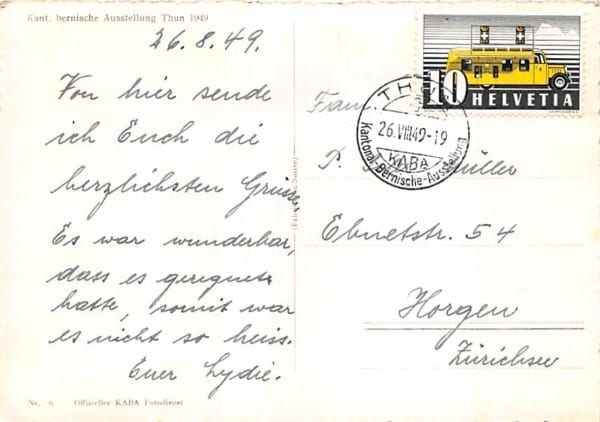 Kant. bernische Ausstellung Thun 1949
26.8.49.
Von hier sende
ich Euch die
herzlichsten Grüsse.
Es war wunderbar,
dass es geregnet
hatte, somit war
es nicht so heiss.
Euer Lydie.
Nr. 6 Offizieller KABA Fotodienst
10 HELVETIA
THUN
26.VIII.49-19
KABA
Kantonal Bernische-Ausstellung
Fam.
P. Müller
Ebnetstr. 54
Horgen
Zürichsee